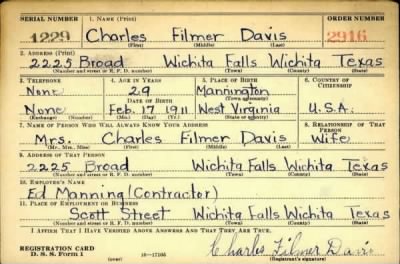 SERIAL NUMBER 1. NAME (Print) ORDER NUMBER
1229 Charles Filmer Davis 2916
(First) (Middle) (Last)
2. ADDRESS (Print)
2225 Broad Wichita Falls Wichita Texas
(Number and street or R. F. D. number) (Town) (County) (State)
3. TELEPHONE 4. AGE IN YEARS 5. PLACE OF BIRTH 6. COUNTRY OF CITIZENSHIP
None 29 Mannington
DATE OF BIRTH (Town or county)
None Feb. 17 1911 West Virginia U.S.A.
(Mo.) (Day) (Yr.) (State or country)
7. NAME OF PERSON WHO WILL ALWAYS KNOW YOUR ADDRESS 8. RELATIONSHIP OF THAT PERSON
Mrs. Charles Filmer Davis Wife
(Mr., Mrs., Miss) (First) (Middle) (Last)
9. ADDRESS OF THAT PERSON
2225 Broad Wichita Falls Wichita Texas
(Number and street or R. F. D. number) (Town) (County) (State)
10. EMPLOYER'S NAME
Ed Manning (Contractor)
11. PLACE OF EMPLOYMENT OR BUSINESS
Scott Street Wichita Falls Wichita Texas
(Number and street or R. F. D. number) (Town) (County) (State)
I AFFIRM THAT I HAVE VERIFIED ABOVE ANSWERS AND THAT THEY ARE TRUE.
REGISTRATION CARD
D. S. S. Form 1 16—17105 Charles Filmer Davis
(Registrant's signature)